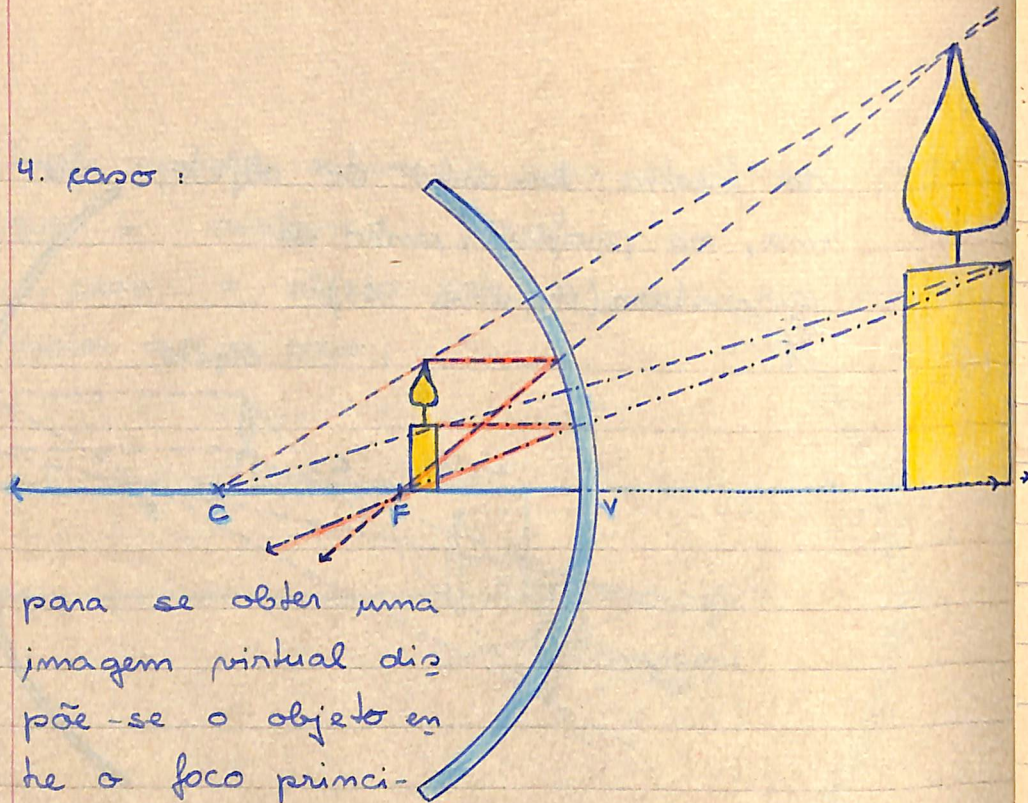 4. caso :
C F V
para se obter uma
imagem virtual dis
põe-se o objeto en
tre o foco princi-